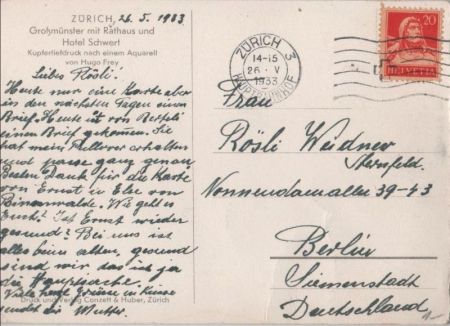 ZÜRICH, 26. 5. 1933
Großmünster mit Rathaus und
Hotel Schwert
Kupfertiefdruck nach einem Aquarell
von Hugo Frey
Liebes Rösli!
Heute nur eine Karte aber
in den nächsten Tagen einen
Brief. Heute ist von
einen Brief gekommen. Sie
hat mein Pullover erhalten
und passe ganz genau.
Besten Dank für die Karte
von Ernst u. Else von
Wie geht es
Euch? Ist Ernst wieder
gesund? Bei uns ist
alles beim alten, gesund
sind wir das ist ja
die Hauptsache.
Viele herzl. Grüsse in Kürze
sendet die Mutter.
Druck und Verlag Conzett & Huber, Zürich
ZÜRICH 3
14-15
26. V
1933
HAUPTBAHNHOF
20
HELVETIA
Frau
Rösli Weidner
Nonnendamallee 39-43
Berlin
Siemenstadt
Deutschland